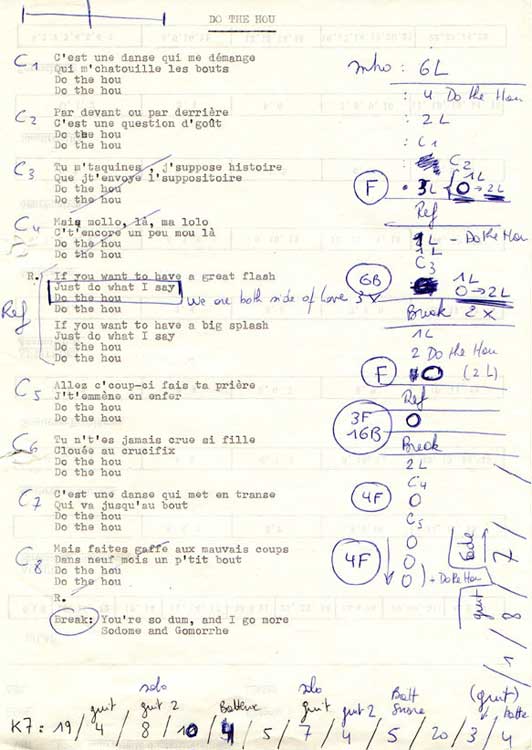 DO THE HOU
C1 C'est une danse qui me démange
Qui m'chatouille les bouts
Do the hou
Do the hou
C2 Par devant ou par derrière
C'est une question d'goût
Do the hou
Do the hou
C3 Tu m'taquines , j'suppose histoire
Que jt'envoye l'suppositoire
Do the hou
Do the hou
C4 Mais mollo, là, ma lolo
C't'encore un peu mou là
Do the hou
Do the hou
R. If you want to have a great flash
Just do what I say
Do the hou
Do the hou
Ref
We are both side of love
If you want to have a big splash
Just do what I say
Do the hou
Do the hou
C5 Allez c'coup-ci fais ta prière
J't'emmène en enfer
Do the hou
Do the hou
C6 Tu n't'es jamais crue si fille
Clouée au crucifix
Do the hou
Do the hou
C7 C'est une danse qui met en transe
Qui va jusqu'au bout
Do the hou
Do the hou
C8 Mais faites gaffe aux mauvais coups
Dans neuf mois un p'tit bout
Do the hou
Do the hou
R.
Break: You're so dum, and I go more
Sodome and Gomorrhe
: 6L
: 4 Do the Hou
: 2L
: C1
C2
F 3L 1L
O → 2L
Ref
1L - Do the Hou
1L
C3
6B 1L
O → 2L
Break 2 X
1L
2 Do the Hou
F O (2L)
Ref
3F O
16B
Break
2L
C4
4F O
C5
4F O
O
O + Do the Hou
guit 8
solo solo Batt (guit)
guit guit 2 Batteur guit guit 2
K7: 19 / 4 / 8 / 10 / 4 / 5 / 7 / 4 / 5 / 20 / 3 / 4